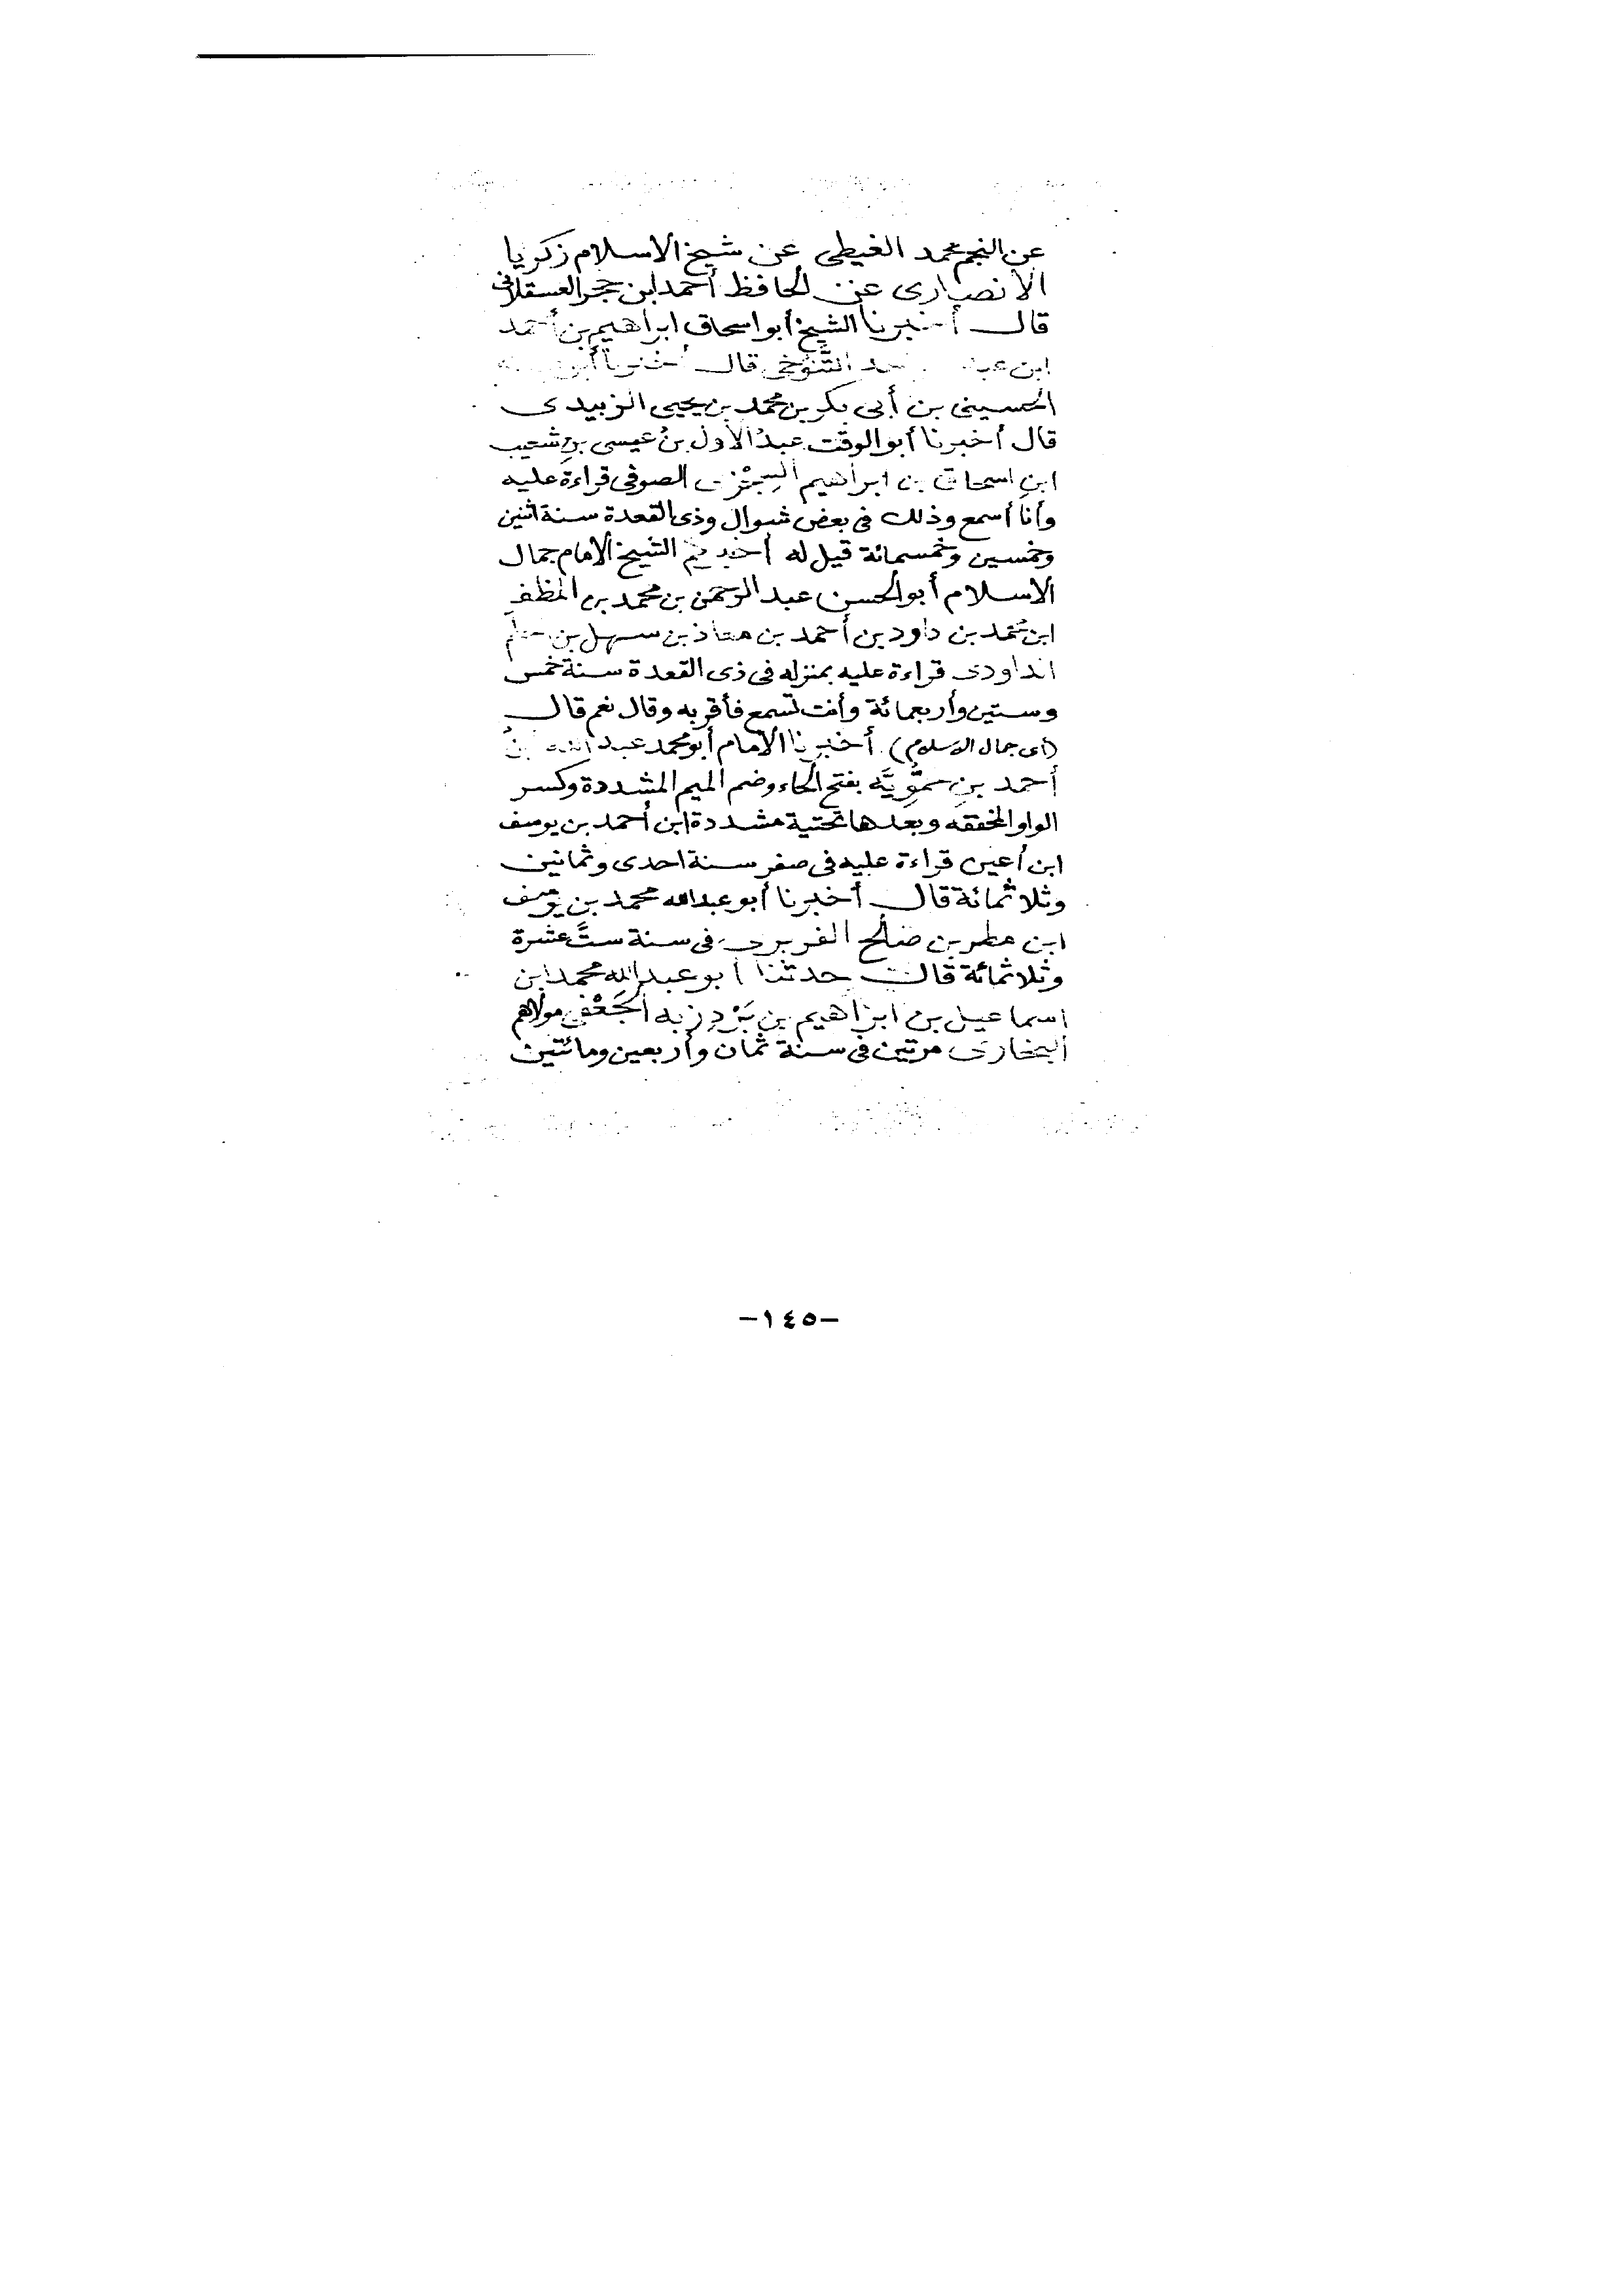 عن النجم محمد الغيطى عن شيخ الاسلام زكريا
الانصارى عن الحافظ أحمد ابن حجر العسقلانى
قال أخبرنا الشيخ أبو اسحاق ابراهيم بن أحمد
ابن التنوخى قال
الحسينى بن أبى بكر بن محمد بن يحيى الزبيدى
قال أخبرنا أبو الوقت عبدُ الأول بنُ عيسى بنِ شعيب
ابنِ اسحاق بن ابراهيم السِجْزى الصوفى قراءة عليه
وأنا أسمع وذلك فى بعض شوال وذى القعدة سنة اثنين
وخمسين وخمسمائة قيل له أخبركم الشيخ الامام جمال
الاسلام أبو الحسن عبد الرحمن بن محمد بن المظفر
ابن محمد بن داود بن أحمد بن معاذ بن سهل بن
الداودى قراءة عليه بمنزله فى ذى القعدة سنة خمس
وستين وأربعمائة وأنت تسمع فأقر به وقال نعم قال
(اى جمال الاسلام) أخبرنا الامام أبو محمد عبد الله بنُ
أحمد بنِ حمُّوِيَّه بفتح الحاء وضم الميم المشددة وكسر
الواو المخففه وبعدها تحتية مشددة ابن أحمد بن يوسف
ابن أعين قراءة عليه فى صفر سنة احدى وثمانين
وثلاثمائة قال أخبرنا أبو عبد الله محمد بن يوسف
ابن مطر بن صالح الفربرى فى سنة ستَّ عشرة
وثلاثمائة قال حدثنا أبو عبد الله محمد ابن
اسماعيل بن ابراهيم بن بَرْدِزبه الجَعْفى مولاهم
البخارى مرتين فى سنة ثمان وأربعين ومائتين
-١٤٥-